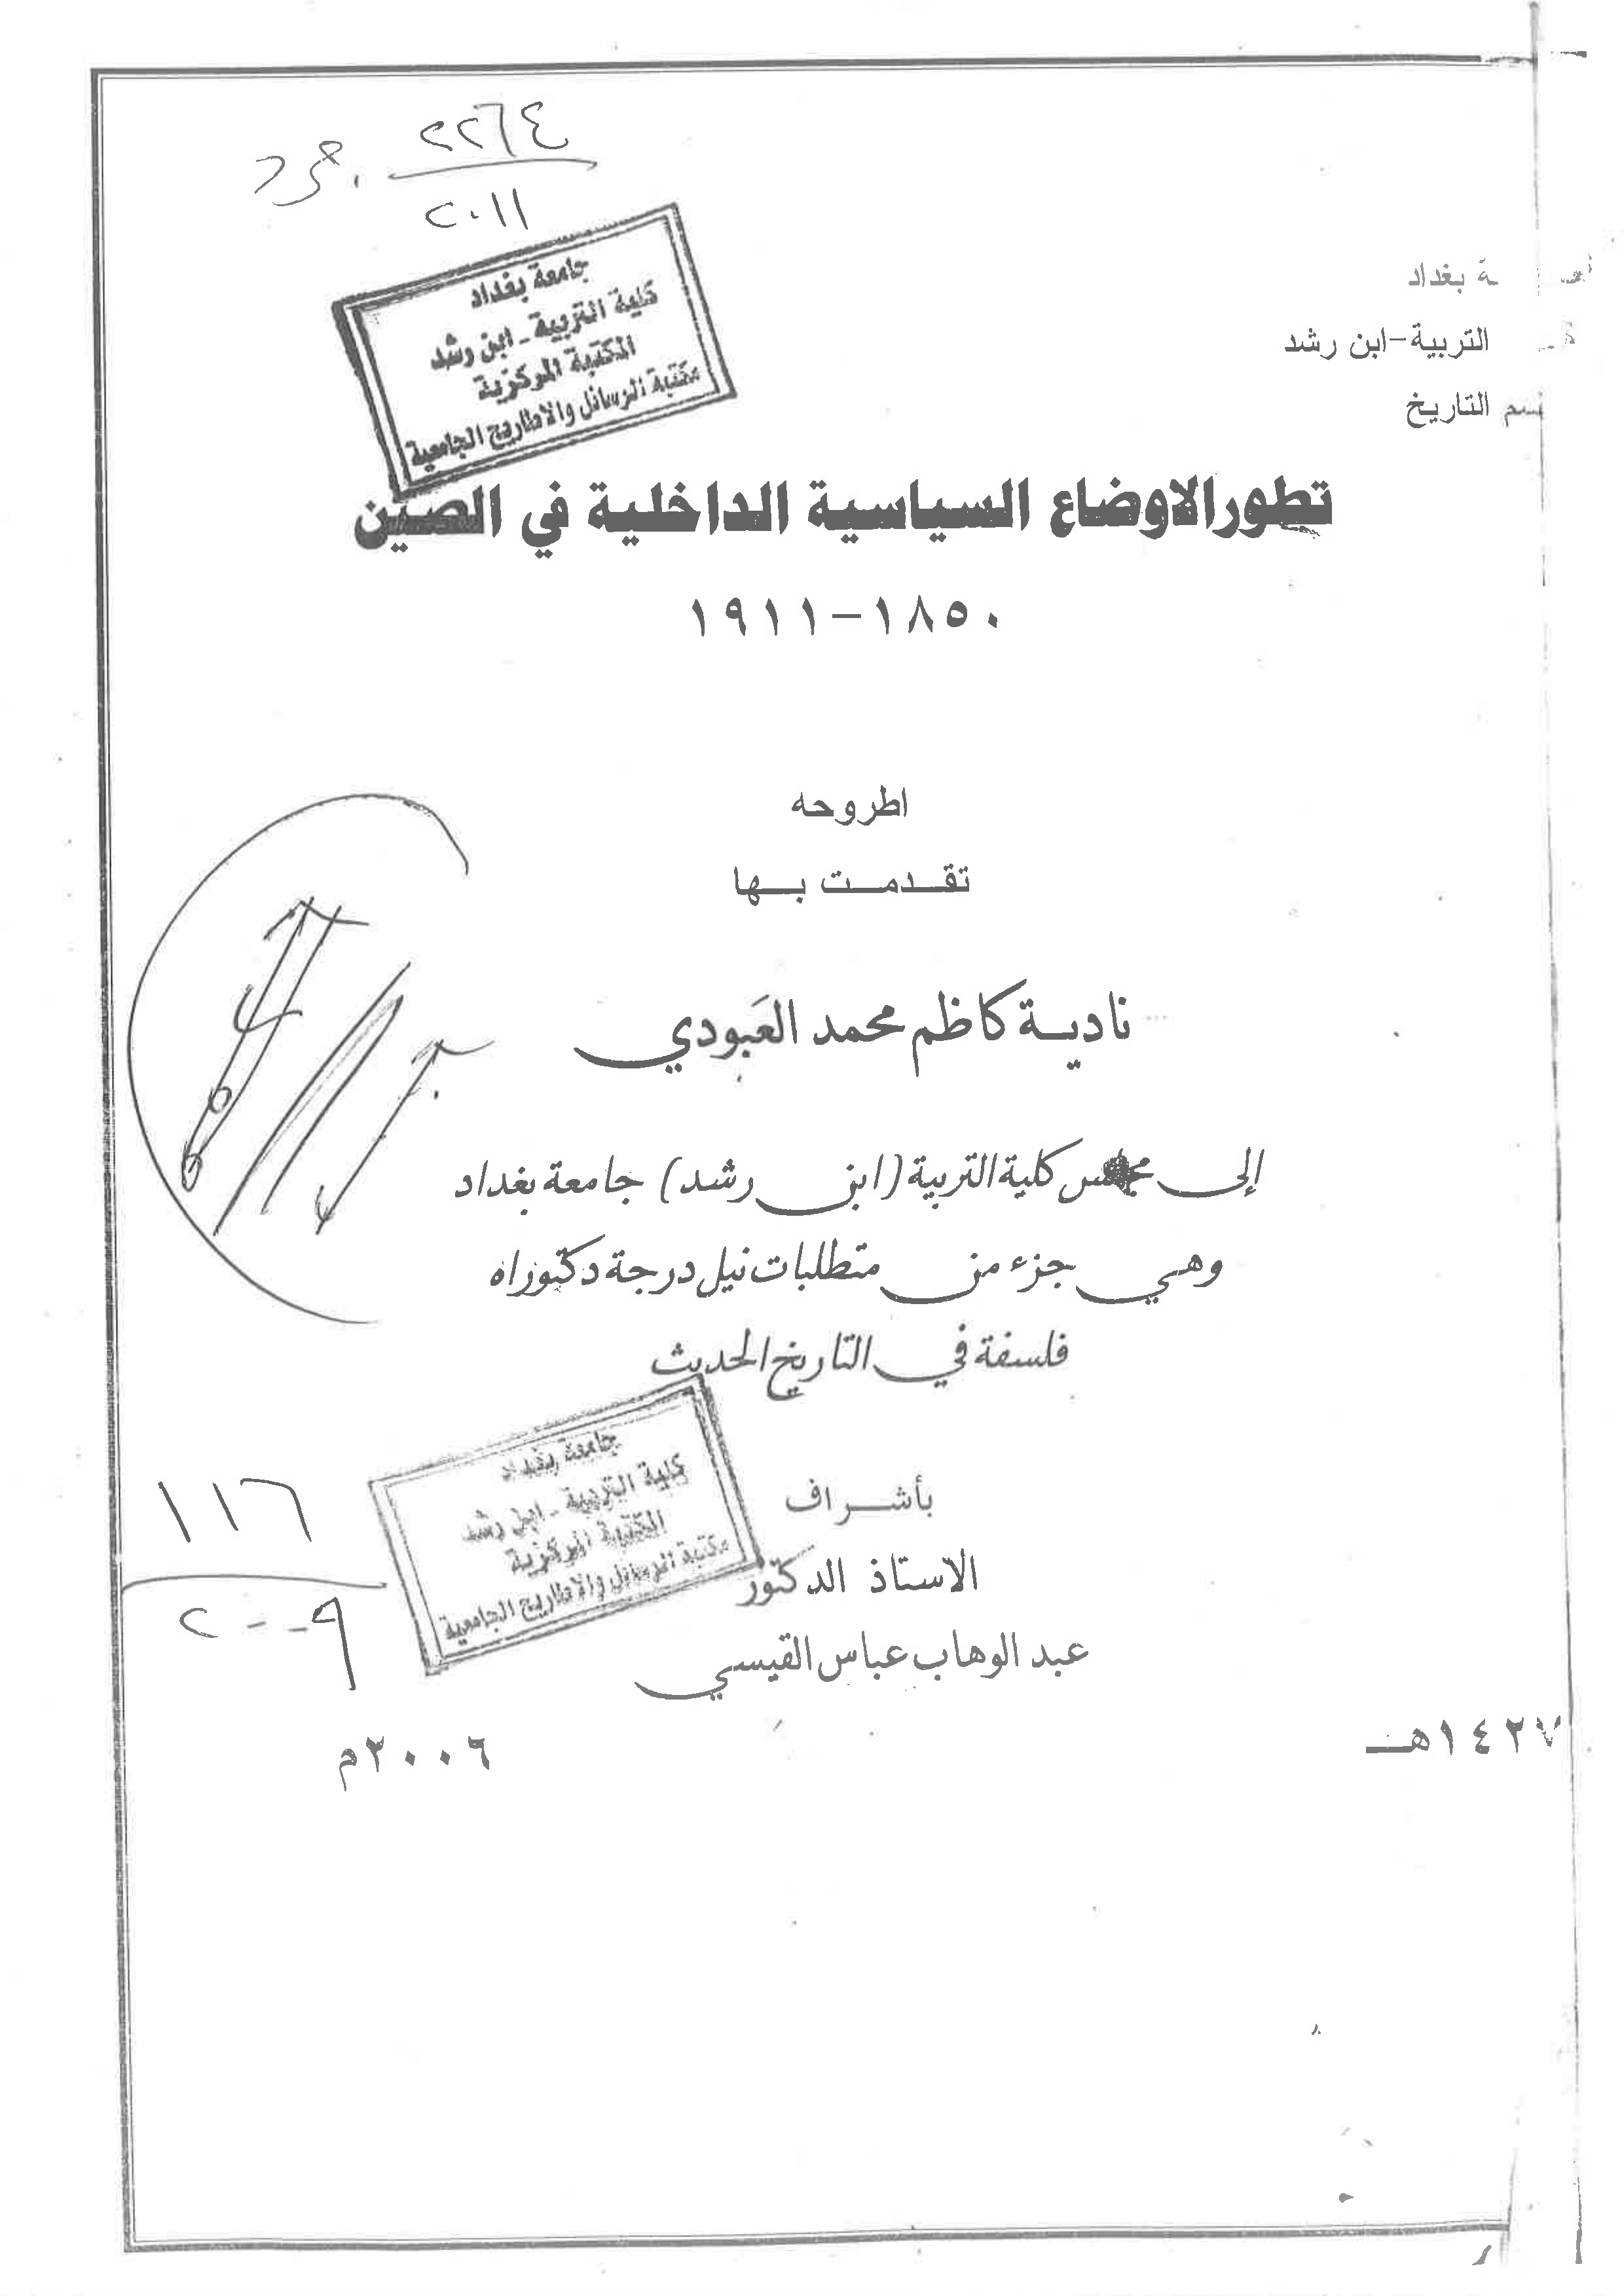 ٢٢٦٤
٢٠١١
جرد
جامعة بغداد
كلية التربية - ابن رشد
المكتبة المركزية
مكتبة الرسائل والاطاريح الجامعية
ة بغداد
التربية-ابن رشد
سم التاريخ
تطورالاوضاع السياسية الداخلية في الصين
١٨٥٠-١٩١١
اطروحه
تقدمت بها
نادية كاظم محمد العَبودي
إلى مجلس كلية التربية (ابن رشد) جامعة بغداد
وهي جزء من متطلبات نيل درجة دكتوراه
فلسفة في التاريخ الحديث
جامعة بغداد
كلية التربية - ابن رشد
المكتبة المركزية
مكتبة الرسائل والاطاريح الجامعية
١١٦
٢٠٠٩
بأشراف
الاستاذ الدكتور
عبد الوهاب عباس القيسي
١٤٢٧هـ
٢٠٠٦م